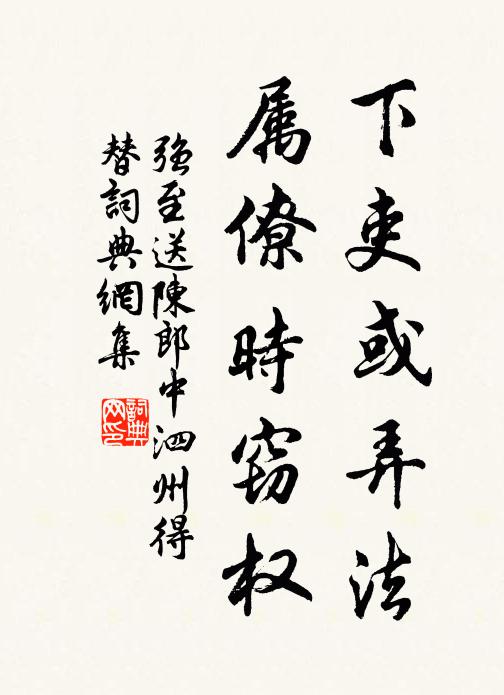 下吏或弄法
属僚時窃权
强至送陳郎中泗州得
替詞典網集
詞典网印